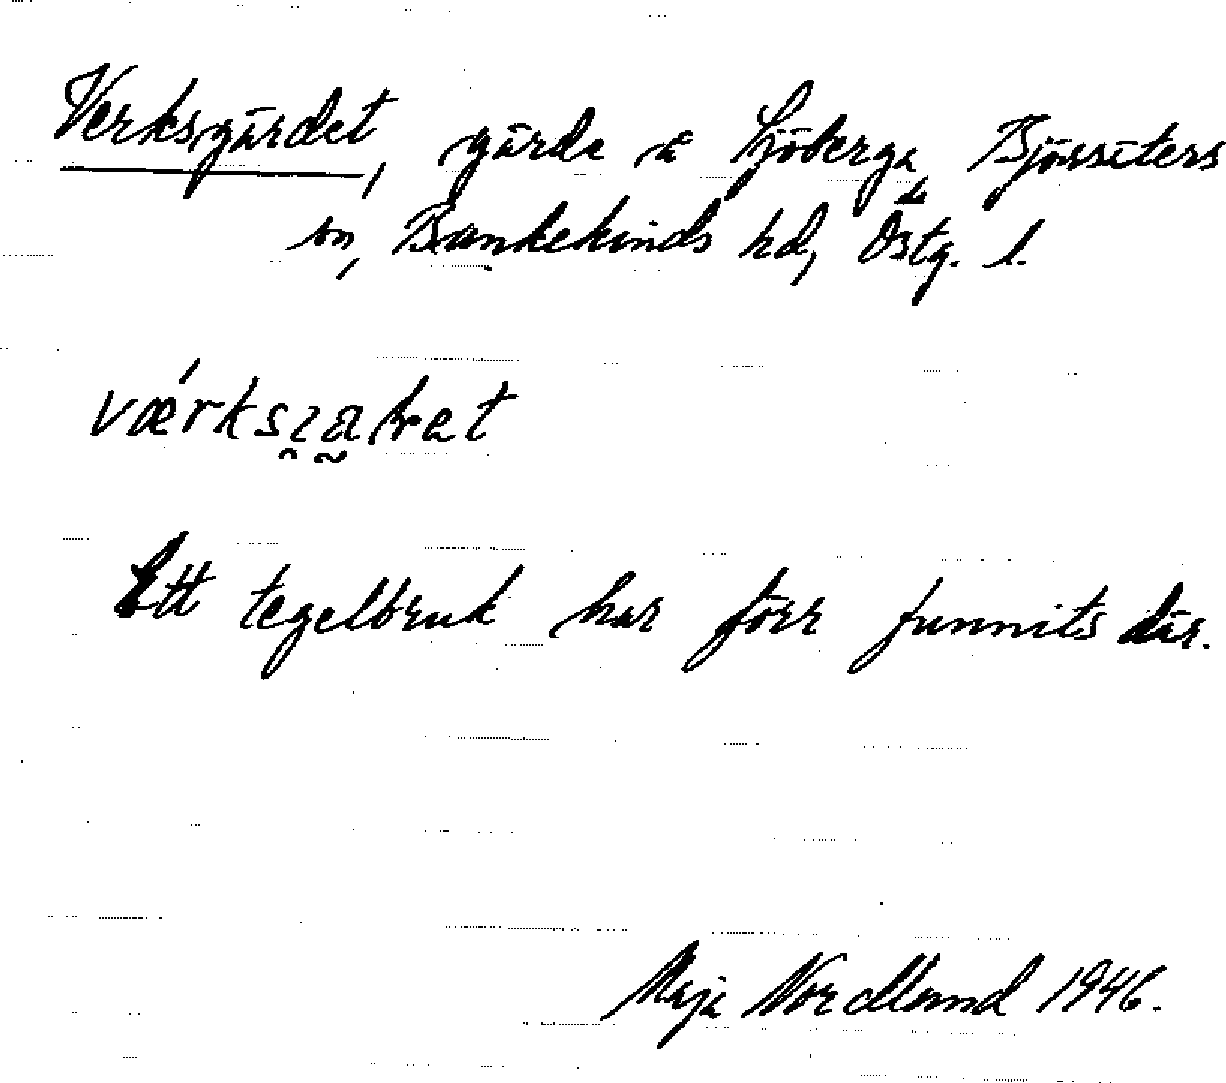 Verksgärdet, gärde å Sjöberga, Bjärsäters
sn, Bankekinds hd, Östg. l.
værksɀa̰ret
Ett tegelbruk har förr funnits där.
Maja Nordlund 1946.